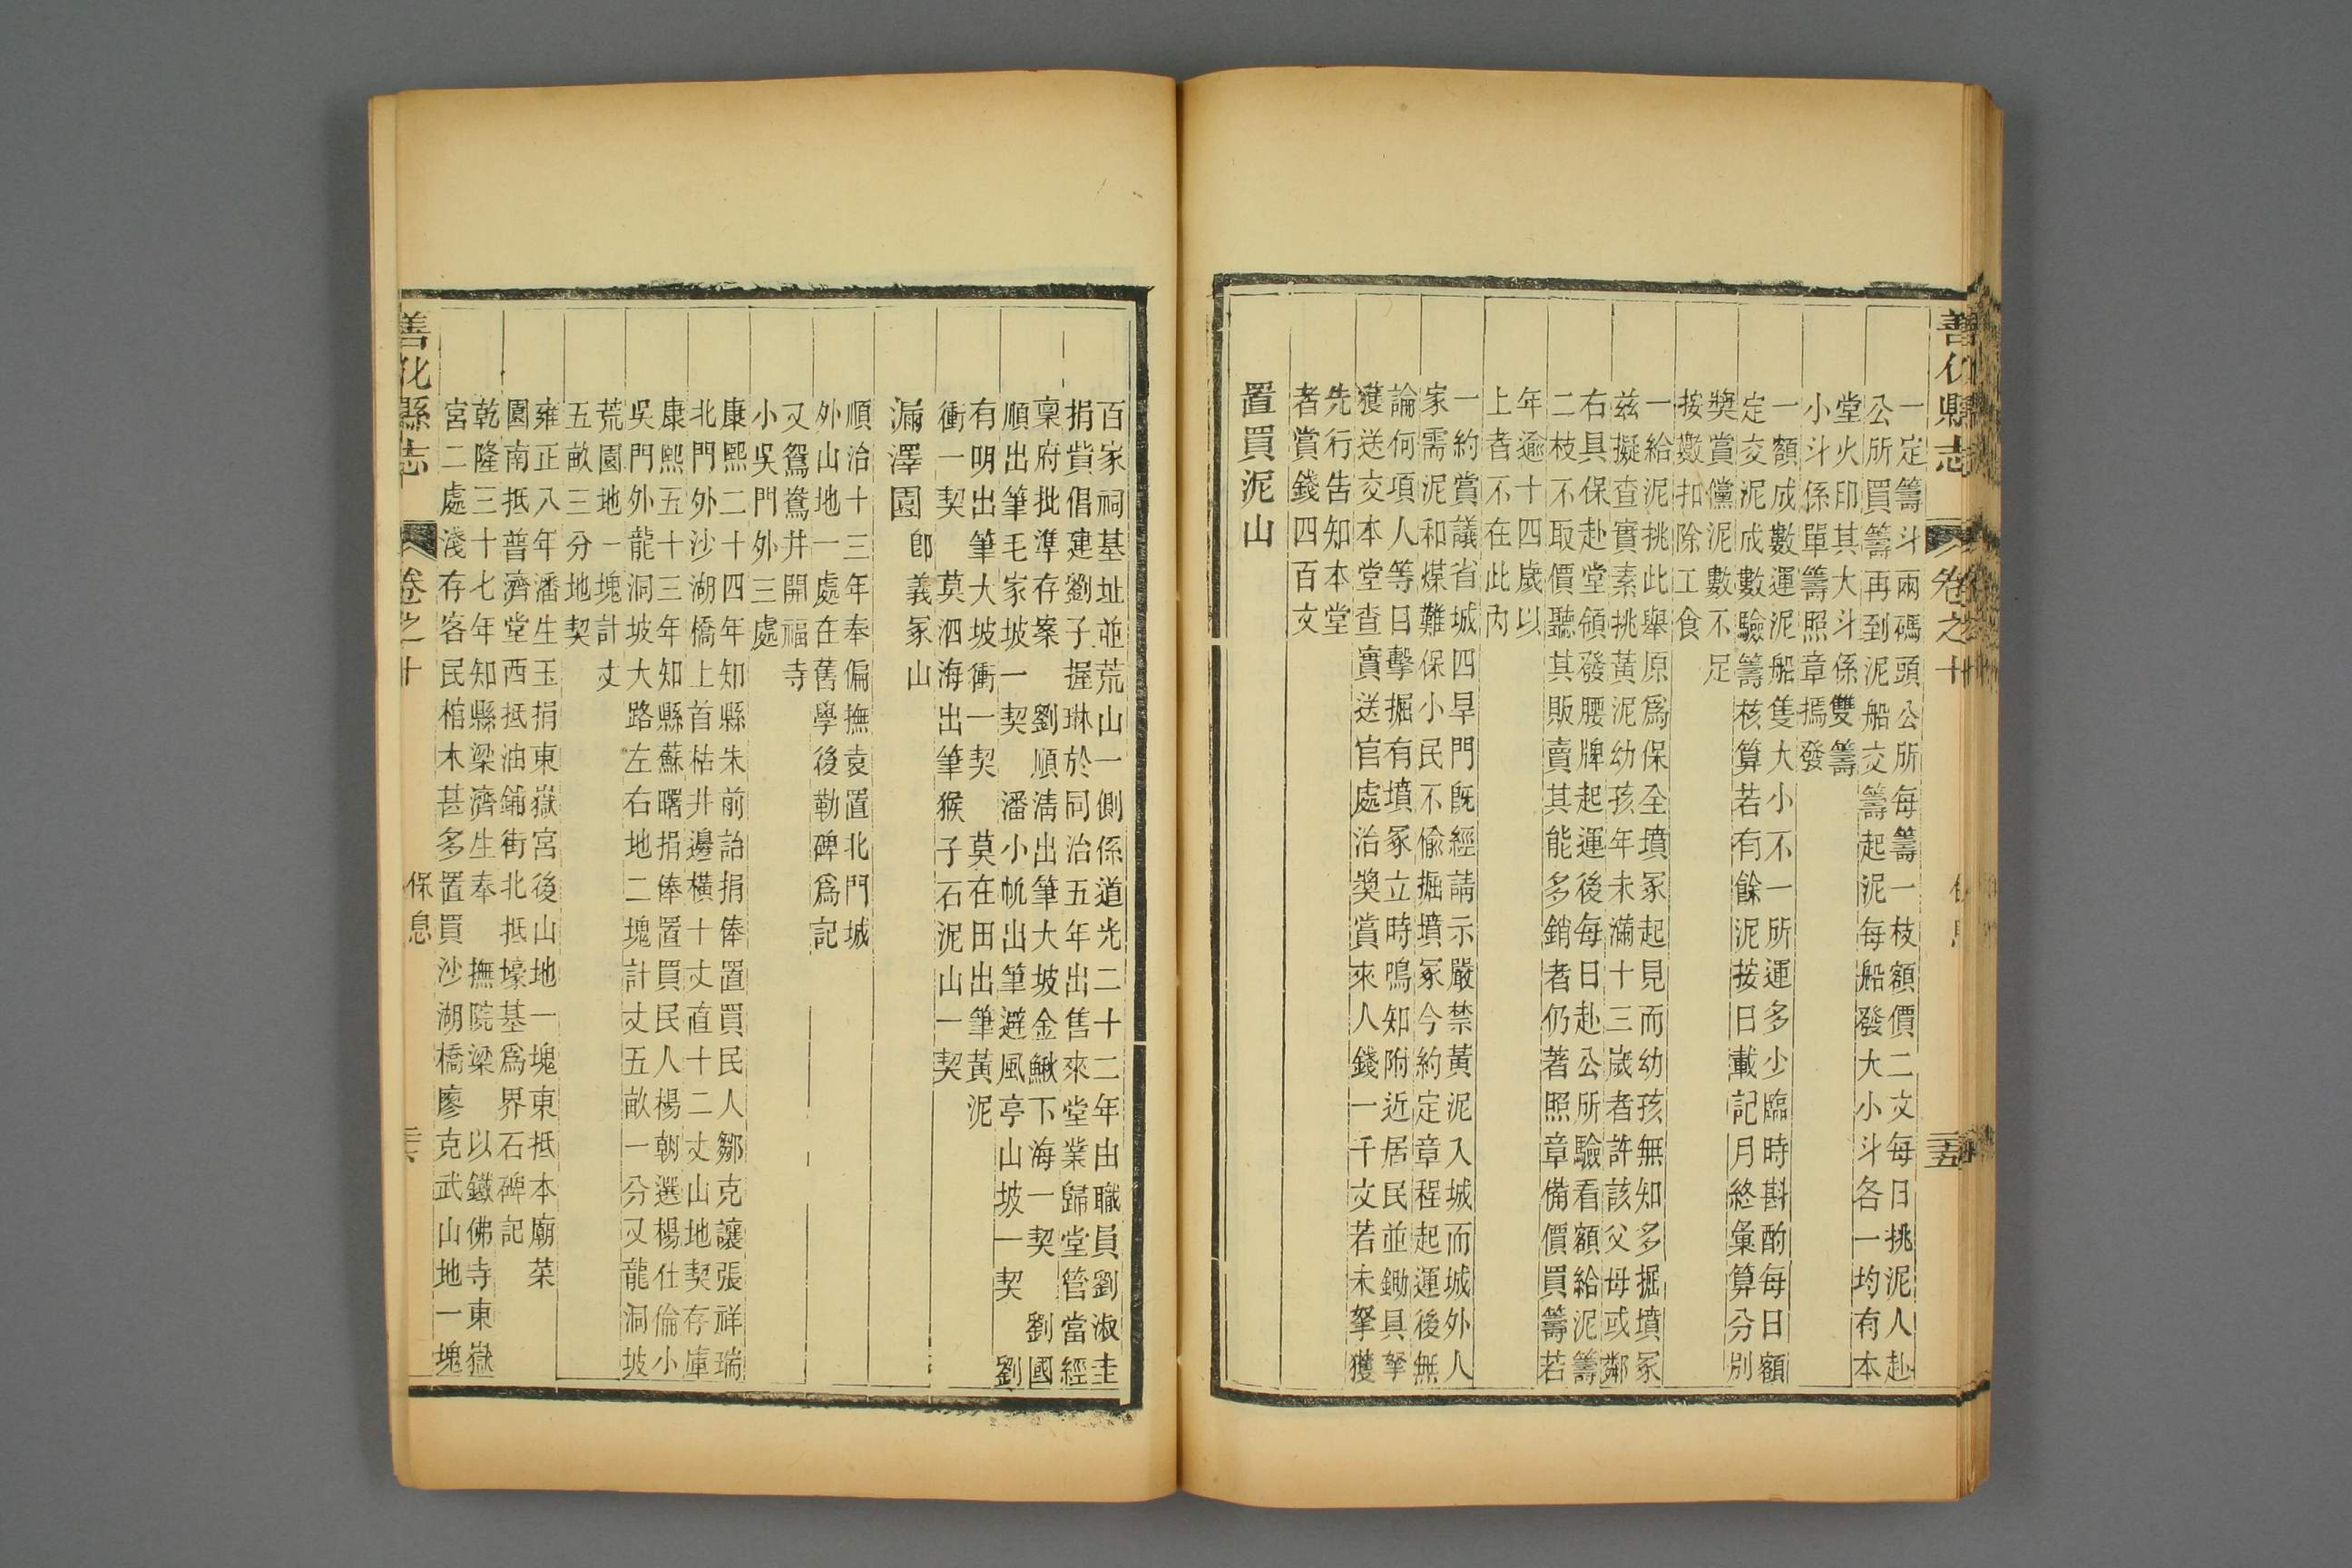 善化縣志 卷之十 二十五
一定籌斗兩碼頭公所每籌一枝額價二文每日挑泥人赴
公所買籌再到泥船交籌起泥每船發大小斗各一均有本
堂火印其大斗係雙籌
小斗係單籌照章撝發
一額成數運泥船隻大小不一所運多少臨時斟酌每日額
定交泥成數驗籌核算若有餘泥按日載記月終彙算分別
獎賞儻泥數不足
按數扣除工食
一給泥挑此舉原爲保全墳冢起見而幼孩無知多掘墳冢
兹擬查實素挑黃泥幼孩年未滿十三歲者許該父母或鄰
右具保赴堂領發腰牌起運後每日赴公所驗看額給泥籌
二枝不取價聽其販賣其能多銷者仍著照章備價買籌若
年逾十四歲以
上者不在此內
一約賞議省城四旱門旣經請示嚴禁黃泥入城而城外人
家需泥和煤難保小民不偷掘墳冢今約定章程起運後無
論何項人等日擊掘有墳冢立時鳴知附近居民並鋤具拏
獲送交本堂查實送官處治獎賞來人錢一千文若未拏獲
先行告知本堂
者賞錢四百文
置買泥山
百家祠基址並荒山一側係道光二十二年由職員劉淑圭
捐貲倡建劉子握琳於同治五年出售來堂業歸堂管當經
稟府批準存案 劉順淸出筆大坡金鰍下海一契 劉國
順出筆毛家坡一契 潘小帆出筆避風亭山坡一契 劉
有明出筆大坡衝一契 莫在田出筆黃泥
衝一契 莫泗海出筆猴子石泥山一契
漏澤園 卽義冢山
順治十三年奉偏撫袁置北門城
外山地一處在舊學後勒碑爲記
又鴛鴦井開福寺
小吳門外三處
康熙二十四年知縣朱前詒捐俸置買民人鄒克讓張祥瑞
北門外沙湖橋上首枯井邊橫十丈直十二丈山地契存庫
康熙五十三年知縣蘇曙捐俸置買民人楊朝選楊仕倫小
吳門外龍洞坡大路左右地二塊計丈五畝一分又龍洞坡
荒園地一塊計丈
五畝三分地契
雍正八年潘生玉捐東嶽宮後山地一塊東抵本廟菜
園南抵普濟堂西抵油鋪街北抵壕基爲界石碑記
乾隆三十七年知縣梁濟生奉 撫院梁 以鐵佛寺東嶽
宮二處淺存客民棺木甚多置買沙湖橋廖克武山地一塊
善化縣志 卷之十 保息 二十六